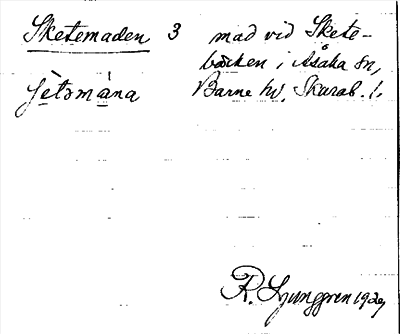 Sketemaden 3 mad vid Skete-
bäcken i Åsaka sn,
Barne hd, Skarab. l.
R. Ljunggren 1929